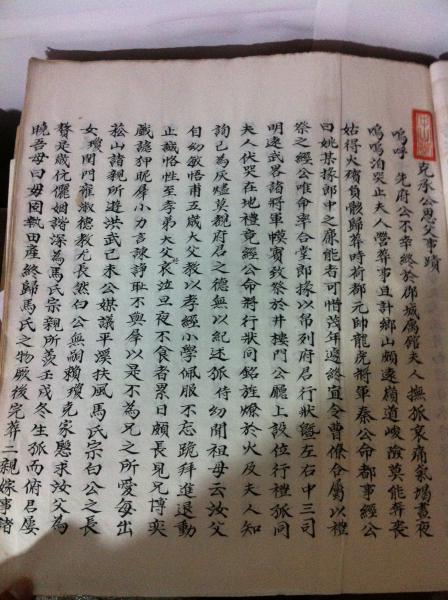 克承公思父事蹟
嗚呼 先府公不幸終於郡城廨館夫人撫孤哀痛氣竭晝夜
嗚嗚泊哭止夫人營葬事且計鄉山頗遠嶺道峻險莫能葬喪
姑得火殯負骸歸葬時前都元帥龍虎將軍秦公命都事經公
曰姚某掾郎中之廉能者可惜茂年遽終宜令曹僚合屬以禮
祭之經公唯命率合堂郎掾以帛列府君行狀 左右中三司
明遠武畧諸將軍幙賓致祭於井樓門公廳上設位行禮孤同
夫人伏哭在地禮竟經公命將行狀同銘旌燎於火及夫人知
詢已為灰燼莫覩府君之德無以紀述孤侍幼聞祖母云汝父
自幼敏悟甫五歲大父教以孝經小學佩服不忘跪拜進退動
止臧恪性至孝弟大父喪泣旦夜不食者累日頗長見兄博奕
戲謔狎昵犀小力言諫諍耻不與犀以是不為兄之所愛每出
菘山諸親所遊洪武己未公媒議平溪扶風馬氏宗白公之長
女瓊閨門雍淑德教尤長然白公無嗣賴瓊克家懇求汝父為
贅是歲伉儷姻諧深為馬氏宗親所羨壬戌冬生孤而俯君屢
曉吾母曰毋囿執田產終歸馬氏之物戝後完葬二親嫁事諸